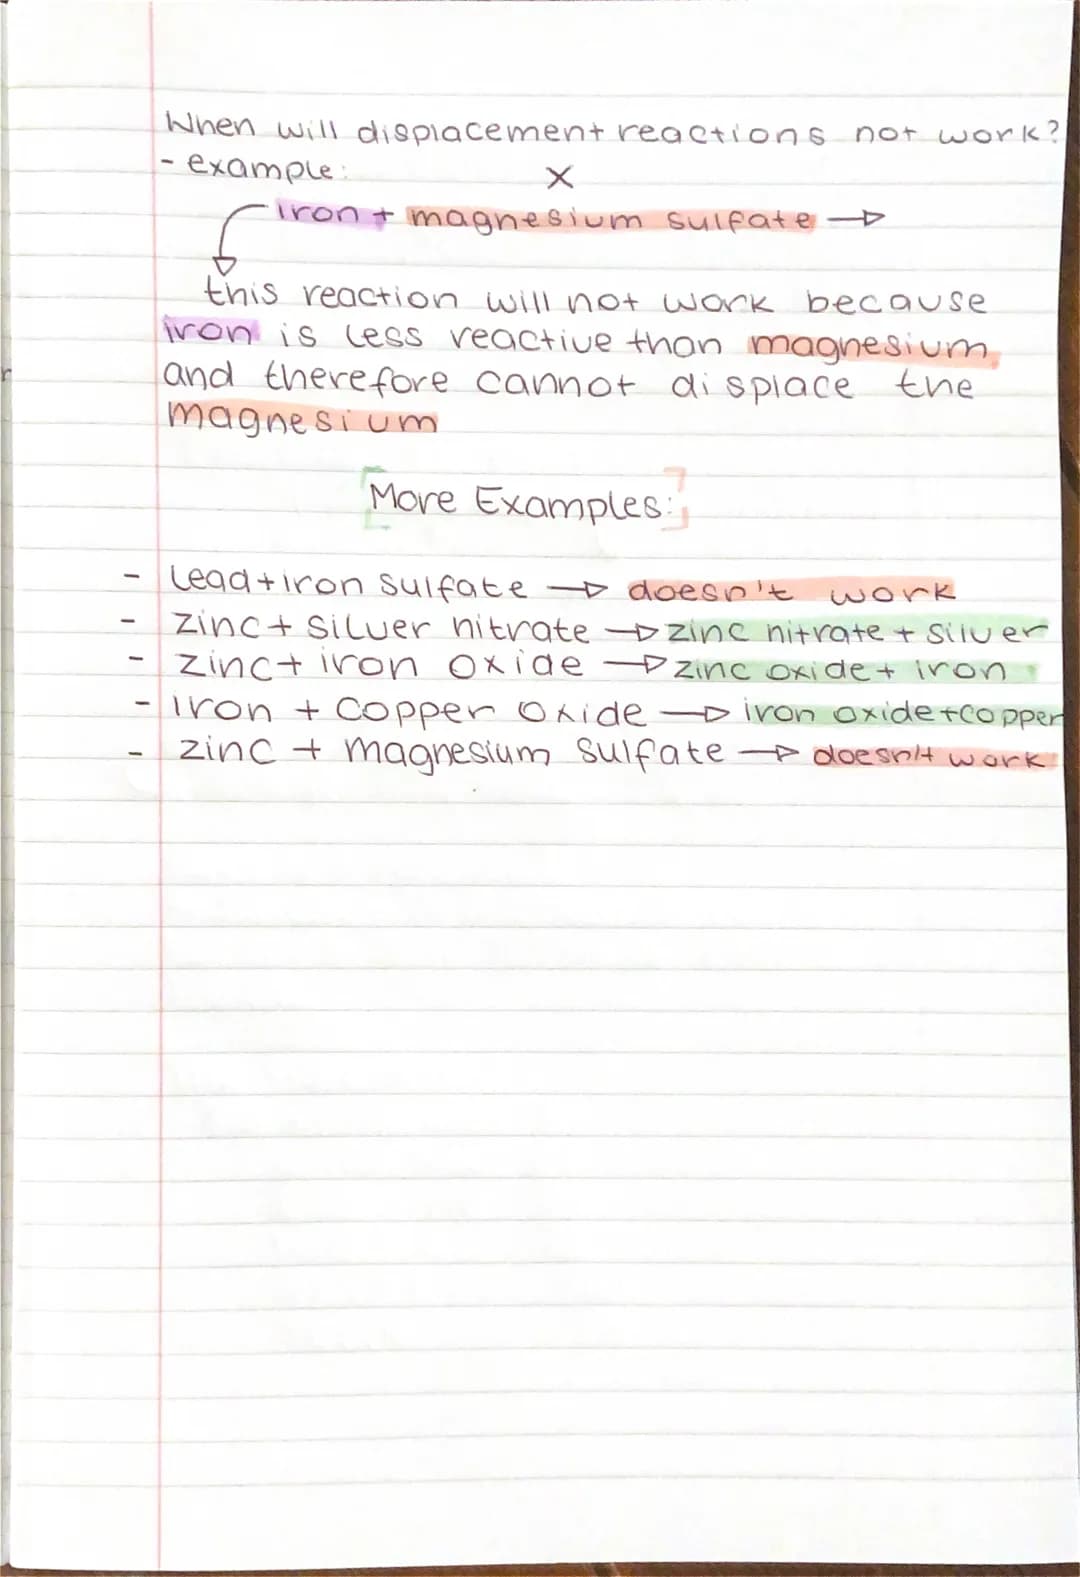 When will displacement reactions not work?
- example:
X
iron + magnesium sulfate →
this reaction will not work because
iron is less reactive than magnesium
and therefore cannot displace the
magnesium
[More Examples:]
- Lead + iron sulfate → doesn't work
- zinc + silver nitrate → zinc nitrate + silver
- zinc + iron oxide → zinc oxide + iron
- iron + copper oxide → iron oxide + copper
- zinc + magnesium sulfate → doesn't work